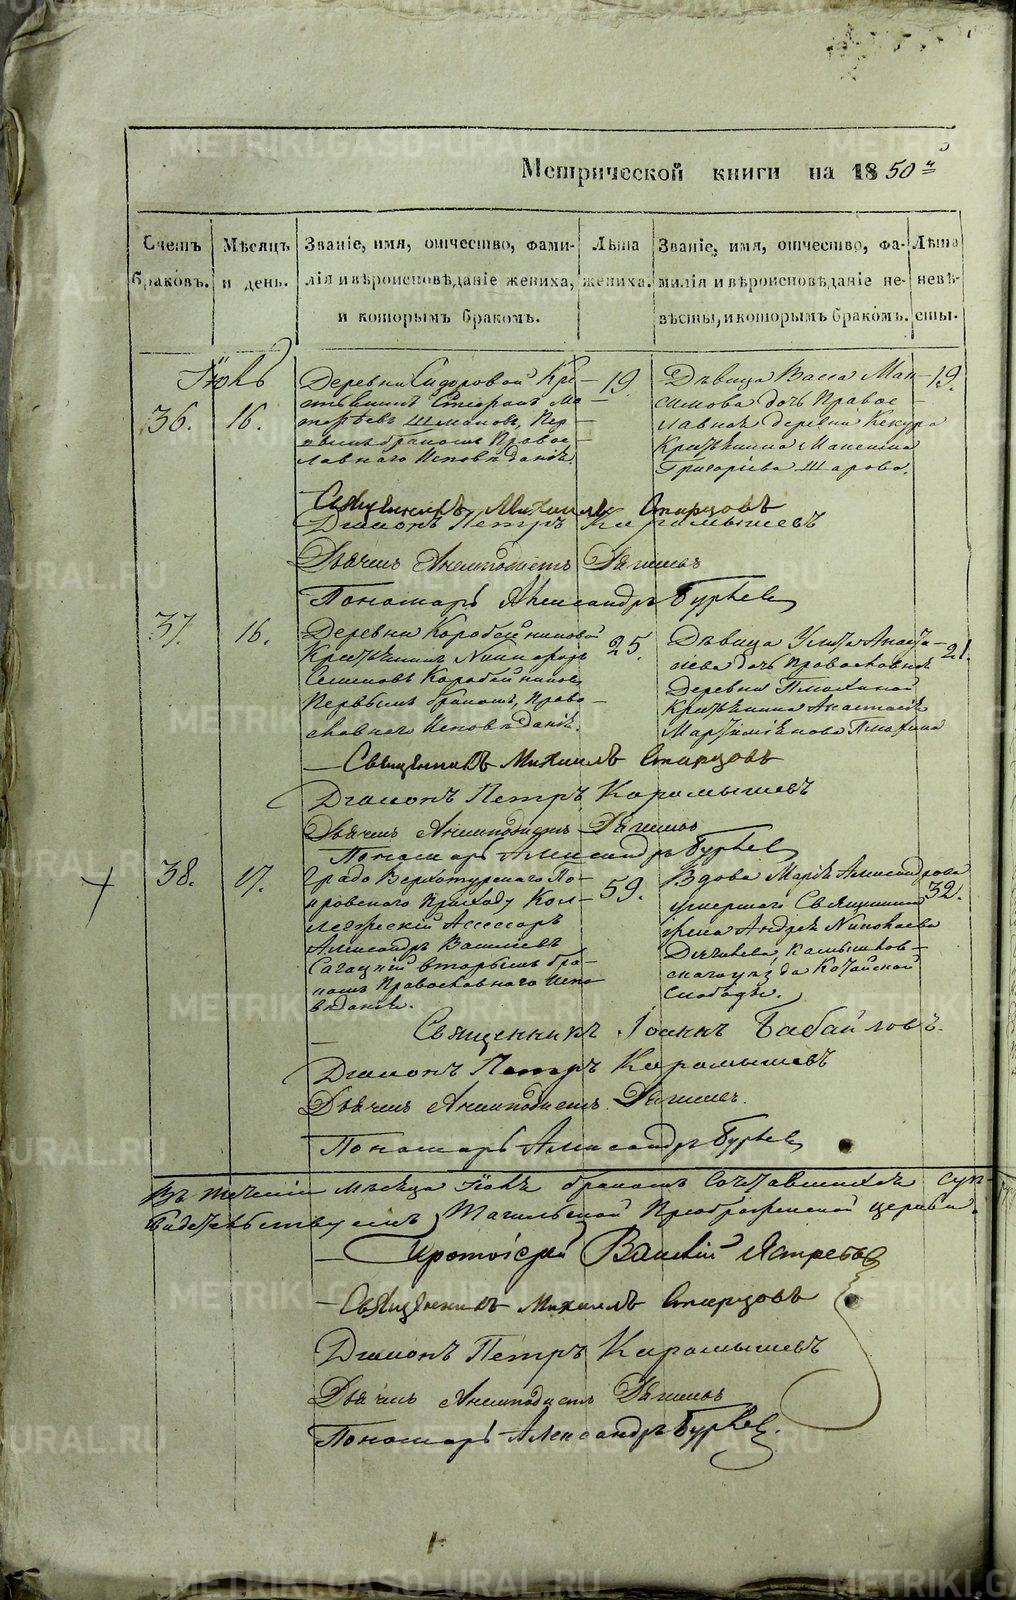 METRIKI.GASO-URAL.RU
Метрической книги на 1850 й
Счетъ браковъ.
Мѣсяцъ и день.
Званіе, имя, отчество, фами-
лія и вѣроисповѣданіе жениха,
и которымъ бракомъ.
Лѣта жениха.
Званіе, имя, отчество, фа-
милія и вѣроисповѣданіе не-
вѣсты, и которымъ бракомъ.
Лѣта невѣ-
сты.
36.
16.
Деревни Сидоровой Кре-
стьянинъ Стефанъ Ма-
твѣевъ Шмаковъ, Пер-
вымъ бракомъ Право-
славнаго Исповѣданія.
19.
Дѣвица Васса Мак-
симова дочь Право-
славная деревни Кекура
Крестьянина Максима
Григоріева Шарова.
19.
Священникъ Михаилъ Старцовъ
Діаконъ Петръ Карамышевъ
Дьячекъ Анемподистъ
Пономарь Александръ Гурьев
37.
16.
Деревни Коробейниковой
Крестьянинъ Никифоръ
Семеновъ Коробейниковъ
Первымъ бракомъ, Право-
славнаго Исповѣданія.
25.
Дѣвица
дочь православная
Деревни
Крестьянина
21.
Священникъ Михаилъ Старцовъ
Діаконъ Петръ Карамышевъ
Дьячекъ Анемподистъ
Пономарь Александръ Гурьев
38.
17.
Града Верхотурскаго По-
кровскаго Приходу Кол-
лежскій Ассесоръ
Александръ Васильевъ
Сагацкій вторымъ бра-
комъ Православнаго Испо-
вѣданія.
59.
Вдова Марія Александрова
умершаго Священника
Андрея Николаева
Камышлов-
скаго уѣзда
Слободы.
32.
Священникъ Іоаннъ Бабайловъ.
Діаконъ Петръ Карамышевъ
Дьячекъ Анемподистъ
Пономарь Александръ Гурьев
Въ теченіи мѣсяца бракомъ Сочетавшихся
свидѣтельствуемъ Тагильской Преображенской церкви.
Протоіерей Василій Ястребов
Священникъ Михаилъ Старцовъ
Діаконъ Петръ Карамышевъ
Дьячекъ Анемподистъ
Пономарь Александръ Гурьев.